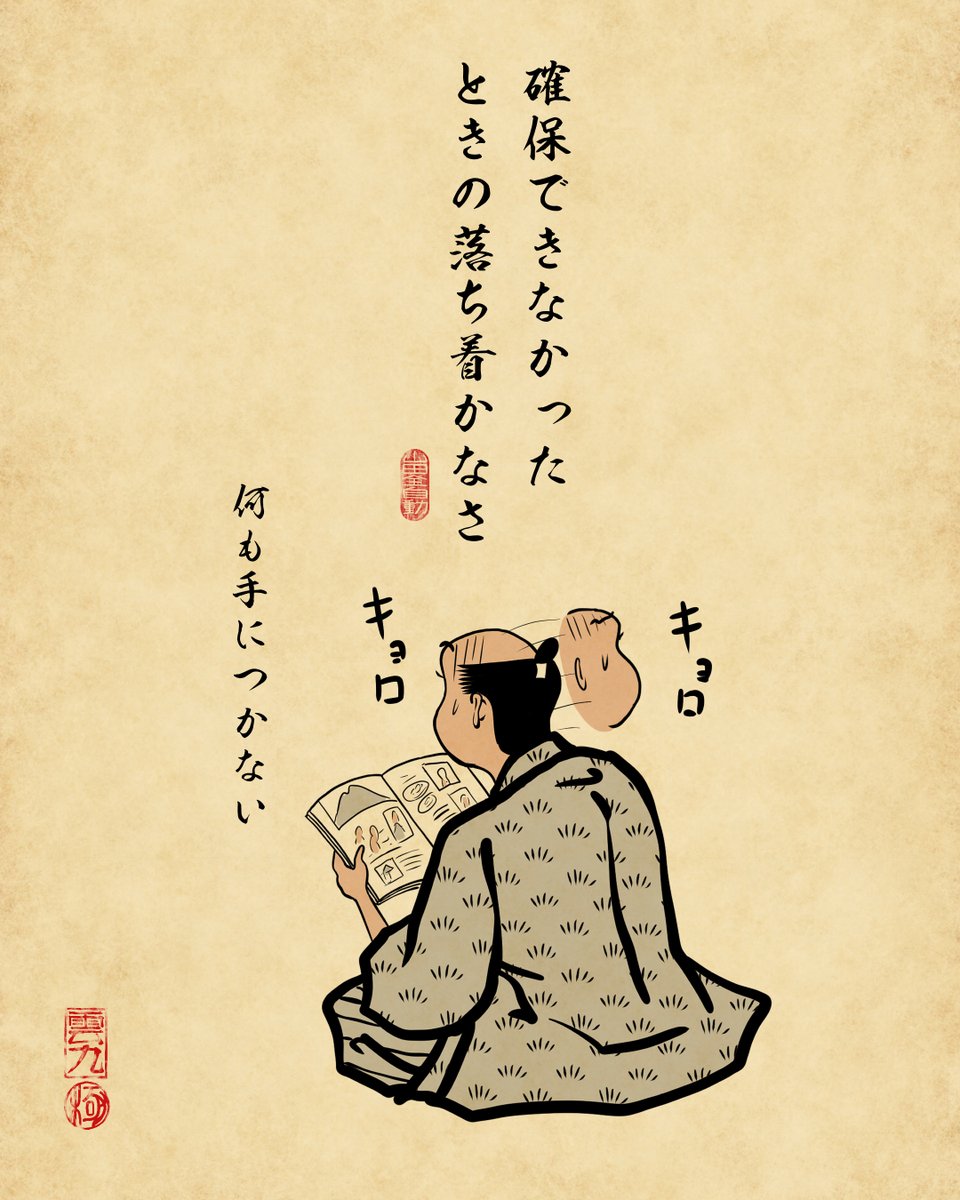 確保できなかった
ときの落ち着かなさ
何も手につかない
キョロ
キョロ